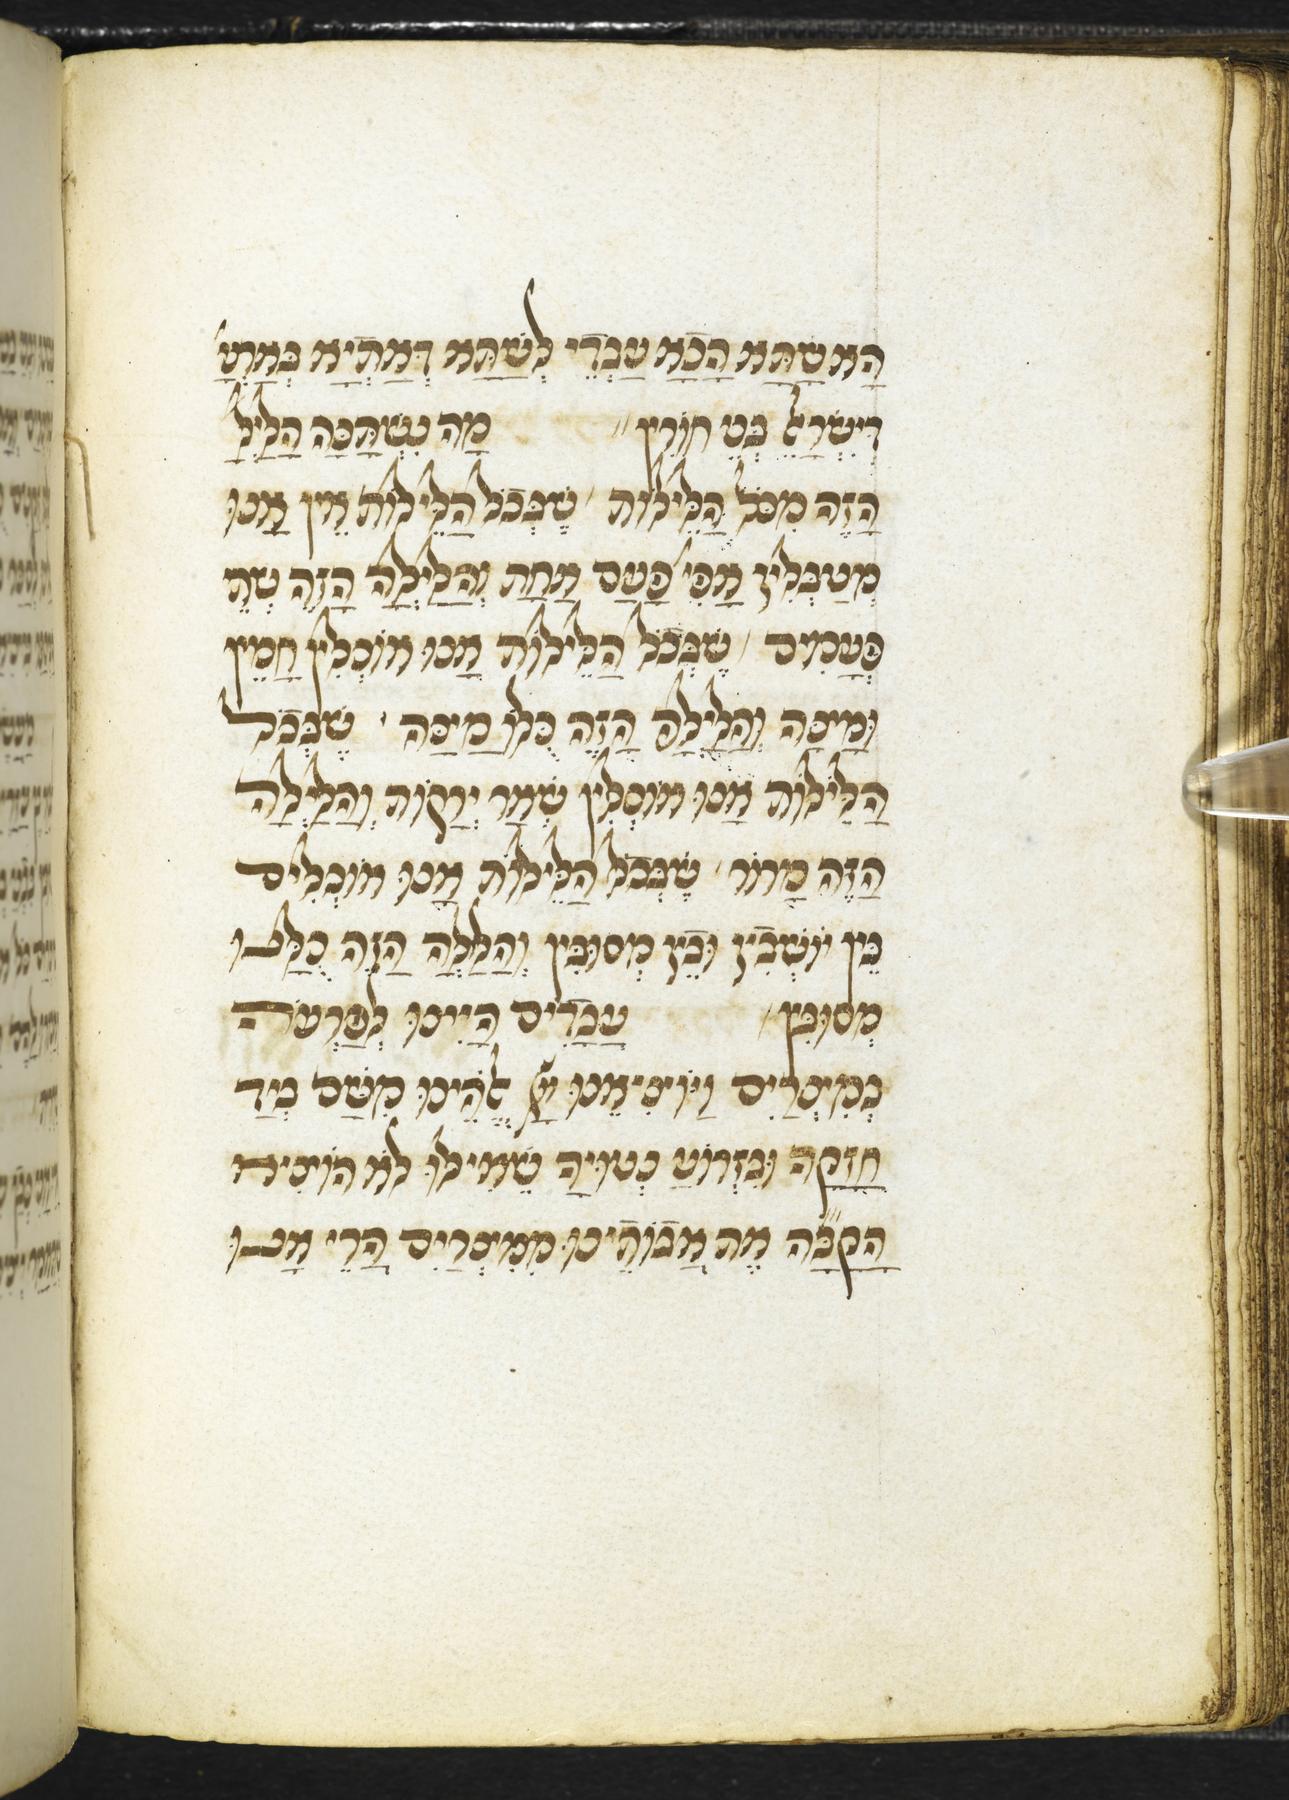 הָא שָׁתָּא הָכָא עַבְדֵי לְשַׁתָּא דְמַתְיָא בְּאַרְעָ'
דְיִשְׂרָאֵל בְּנֵי חוֹרִין׳׳ מָה נִשְׁתַּנָּה הַלַיְלָ'
הַזֶה מִכֹּל הַלֵּילוֹת / שֶׁבְּכֹל הַלֵּילוֹת אֵין אָנוּ
מְטַבְּלִין אֲפִי' פַּעַם אַחַת וְהַלַיְלָה הַזֶה שְׁתֵי
פְּעָמִים / שֶׁבְּכֹל הַלֵּילוֹת אָנוּ אוֹכְלִין חָמֵץ
וּמַצָּה וְהַלַיְלָה הַזֶה כֻּלוֹ מַצָּה ׳ שֶׁבְּכֹל
הַלֵּילוֹת אָנוּ אוֹכְלִין שְׁאָר יְרָקוֹת וְהַלַיְלָה
הַזֶּה מָרוֹר / שֶׁבְּכֹל הַלֵּילוֹת אָנוּ אוֹכְלִים
בֵּין יוֹשְׁבִין וּבֵין מְסוּבִּין וְהַלַלָה הַזֶה כֻּלָנוּ
מְסוּבִּין / עֲבָדִים הָיִינוּ לְפַרְעֹה
בְמִצְרַיִם וַיוֹצִיאֵנוּ יְיָ אֱלֹהֵינוּ מִשָּׁם בְּיַד
חֲזָקָה וּבִזְרוֹעַ נְטוּיָה שֶׁאִילוּ לֹא הוֹצִיא
הַקָבָּ״ה אֶת אֲבוֹתֵינוּ מִמִצְרַיִם הֲרֵי אָנוּ